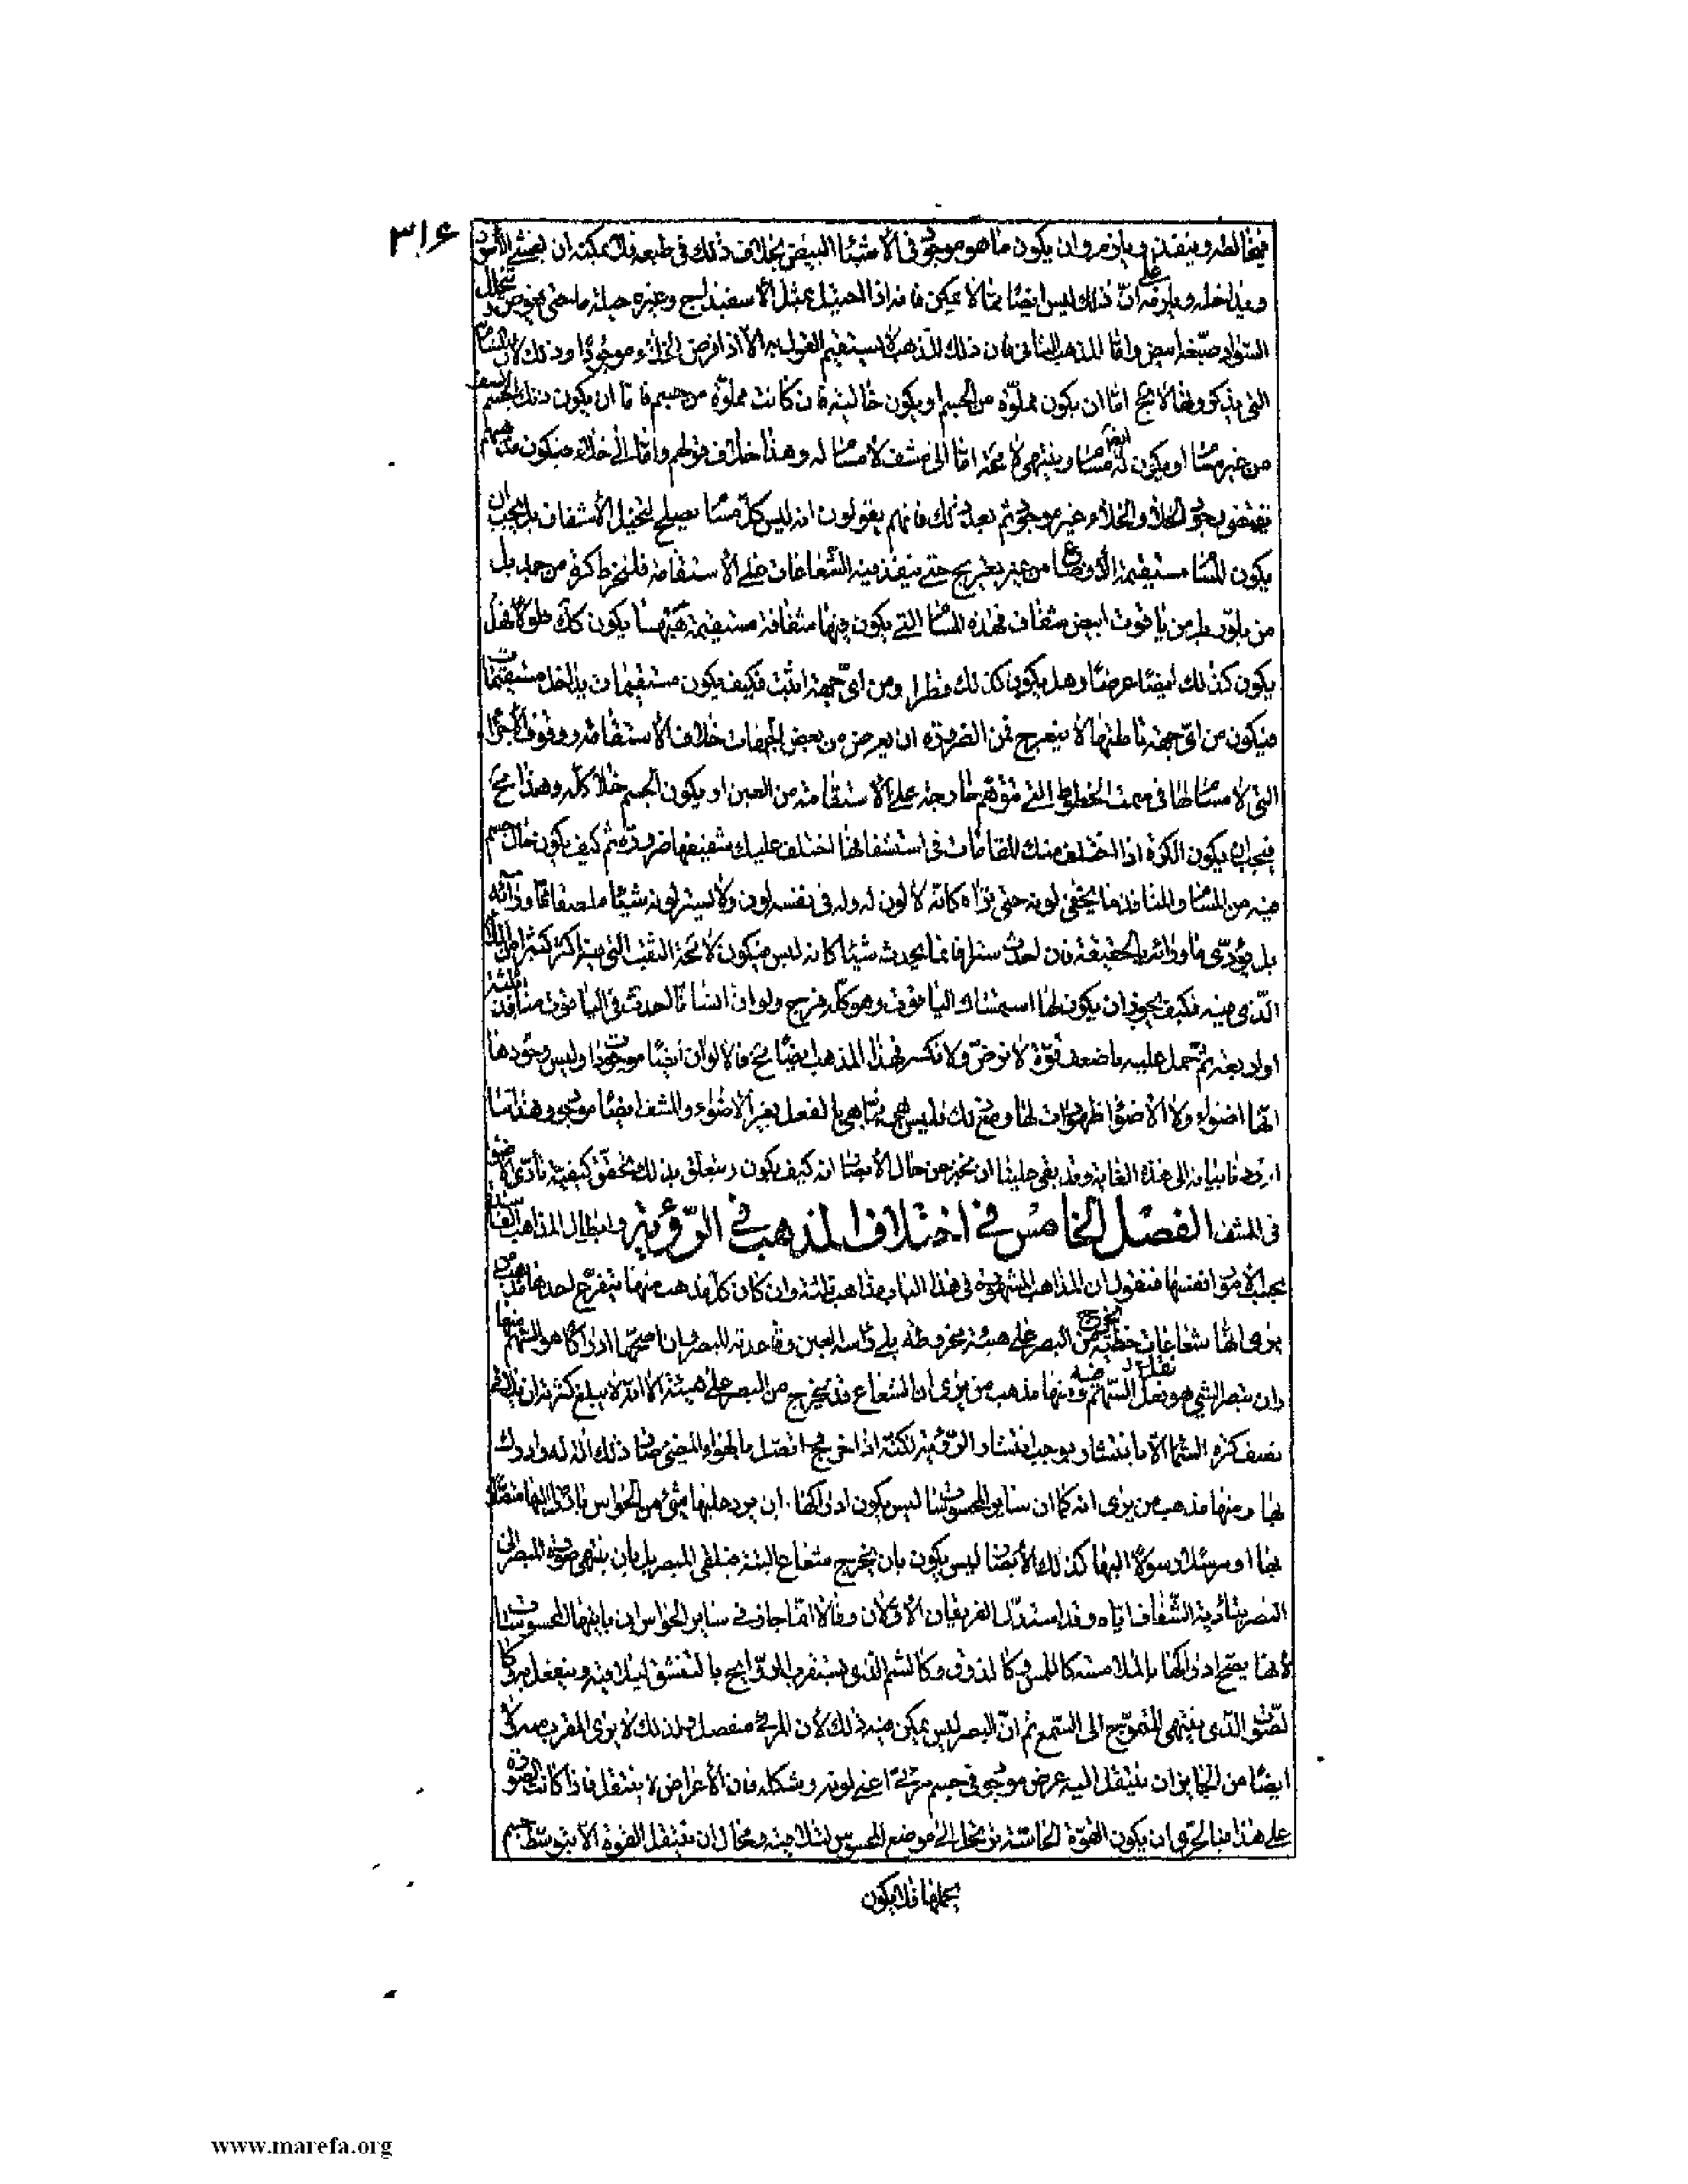 ٣١۶
فيخالطه وينفذ فيه ويلزمه وان يكون ما هو موجود فى الأشياء البيض بخلاف ذلك فى طبعه فلا يمكنه ان يغشى الأسود
ويداخله ويلزمه على ان ذلك ليس ايضا مما لا يمكن فانه اذا احتيل بمثل الأسفيذاج وغيره حيلة ما حتى يغوص ويتخلل
السواد صبغه ابيض واما المذهب الثانى فان ذلك المذهب لا يستقيم القول به الا اذا فرض الخلاء موجودا وذلك لان المسام
التى يذكرونها لا يخ اما ان يكون مملوّة من الجسم او يكون خالية فان كانت مملوّة من جسم فاما ان يكون ذلك الجسم يشف
من غير مسام او يكون له ايضا مسام وينتهى لا محة اما الى مشف لا مسام له وهذا خلاف قولهم واما الى خلاء فيكون مذهبهم
يقتضى وجود الخلاء والخلاء غير موجود ثم بعد ذلك فانهم يقولون انه ليس كل مسام يصلح لتخييل الأشفاف بل يجب ان
يكون المسام مستقيمة الأوضاع من غير تعريج حتى ينفذ فيه الشعاعات على الأستقامة فلنخرط كرة من جمد بل
من بلور بل من ياقوت ابيض شفاف فهذه المسام التى يكون فيها شفافة مستقيمة هبها يكون كك طولا فهل
يكون كذلك ايضا عرضا وهل يكون كذلك قطرا ومن اى جهة اثبت فكيف يكون مستقيمات يداخل مستقيمات
فيكون من اى جهة تاملتها لا ينعرج فمن الضرورة ان يعرض من بعض الجهات خلاف الأستقامة ووقوف الأجزاء
التى لا مسام لها فى سمت الخطوط التى تتوهم خارجة على الأستقامة من العين او يكون الجسم خلاء كله وهذا مح
فيجب ان يكون الكرة اذا اختلف منك المقامات فى استشفافها اختلف عليك شفيفها ضرورة ثم كيف يكون حال جسم
فيه من المسام والمنافذ ما يخفى لونه حتى تراه كانه لا لون له وله فى نفسه لون ولا يستر لونه شيئا ملصقا بما وراءه
بل يؤدى ما وراءه بالحقيقة فان احدث سترا فانما يحدث شيئا كانه ليس فيكون لا محة الثقب التى فيه اكثر كثيرا من الملاء
الذى فيه فكيف يجوز ان يكون لها استمساك الياقوت وهو كله فرج ولو ان انسانا احدث فى الياقوت منافذ ثلثة
او اربعة ثم حمل عليه باضعف قوة لا نرضّ ولا نكسر فهذا المذهب ايضا مح فالالوان ايضا موجودات وليس وجودها
انها اضواء ولا الأضواء ظهورات لها ومع ذلك فليس هى مما هى بالفعل بغير الأضواء والمشف ايضا موجود وهذا ما
اردنا بيانه الى هذه الغاية وقد بقى علينا ان نخبر عن حال الأبصار انه كيف يكون ويتعلق بذلك تحقق كيفية تأدى الأضواء
فى المشف الفصل الخامس فى اختلاف المذهب فى الرؤية وابطال المذاهب الفاسدة
بحسب الأمور انفسها فنقول ان المذاهب المشهورة فى هذا الباب مذاهب ثلثة وان كان كل مذهب منها يتفرع احدها مذهب من
يرى انها شعاعات خطية تخرج من البصر على هيئة مخروط يلى رأسه العين وقاعدته المبصر وان اصحّها ادراكا هو السهم منها
وان يبصر الشىء هو نقل السهم فيه ومنها مذهب من يرى ان الشعاع قد يخرج من البصر على هيئة الا انه لا يبلغ كثرته ان يلاقى
نصف كرة السماء الا بانتشار يوجب انتشار الرؤية لكنه اذا خرج واتصل بالهواء المضىء صار ذلك آلة له وادرك
بها ومنها مذهب من يرى انه كما ان ساير المحسوسات ليس يكون ادراكها بان يرد عليها شىء من الحواس بارزا اليها متصلا
بها او مرسلا رسولا اليها كذلك الأبصار ليس يكون بان يخرج شعاع البتة فيلقى المبصر بل بان ينتهى صورة المبصر الى
البصر بتأدية الشفاف اياه وقد استدل الفريقان الأولان وقالا انما جاز فى ساير الحواس ان ياتيها المحسوسات
لانها يصح ادراكها بالملامسة كاللمس وكالذوق وكالشم الذى يستقرب الروايح بالتنشق ليلاقيه وينفعل به وكا
لصوت الذى ينتهى به التموج الى السمع ثم انّ البصر ليس يمكن فيه ذلك لان المرئى منفصل ولذلك لا يرى المقرب منه ولا
ايضا من الجايز ان ينتقل اليه عرض موجود فى جسم مرئى اعنى لونه وشكله فان الأعراض لا ينتقل فاذا كانت الصورة
على هذا فبالحرى ان يكون القوة الحاسّة ترتحل الى موضع المحسوس لتلاقيه ومحال ان تنتقل القوة الا بتوسط جسم
يحملها فلا يكون
www.marefa.org